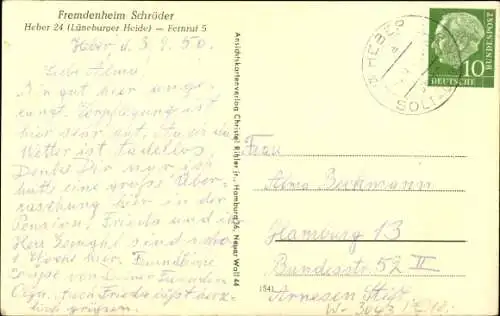 Fremdenheim Schröder
Heber 24 (Lüneburger Heide) — Fernruf 5
Heber, d. 3. 9. 56.
Liebe Alma!
Bin gut hier ange-
langt. Verpflegung ist
hier sehr gut, auch
Wetter ist tadellos.
Denke Dir nur ich
hatte eine große Über-
raschung hier in der
Pension, Frieda und
Herr sind schon
1 Woche hier. Freundliche
Grüße von Deiner Freundin
Olga. Auch Frieda läßt herz-
lich grüßen.
Ansichtskartenverlag Christel Rihler jr., Hamburg 36, Neuer Wall 44
HEBER
SOLTAU
10
DEUTSCHE
BUNDESPOST
Frau
Alma Beckmann
Hamburg 13
Bundesstr. 52 II
Arnesen Stift
1541
W- 3043